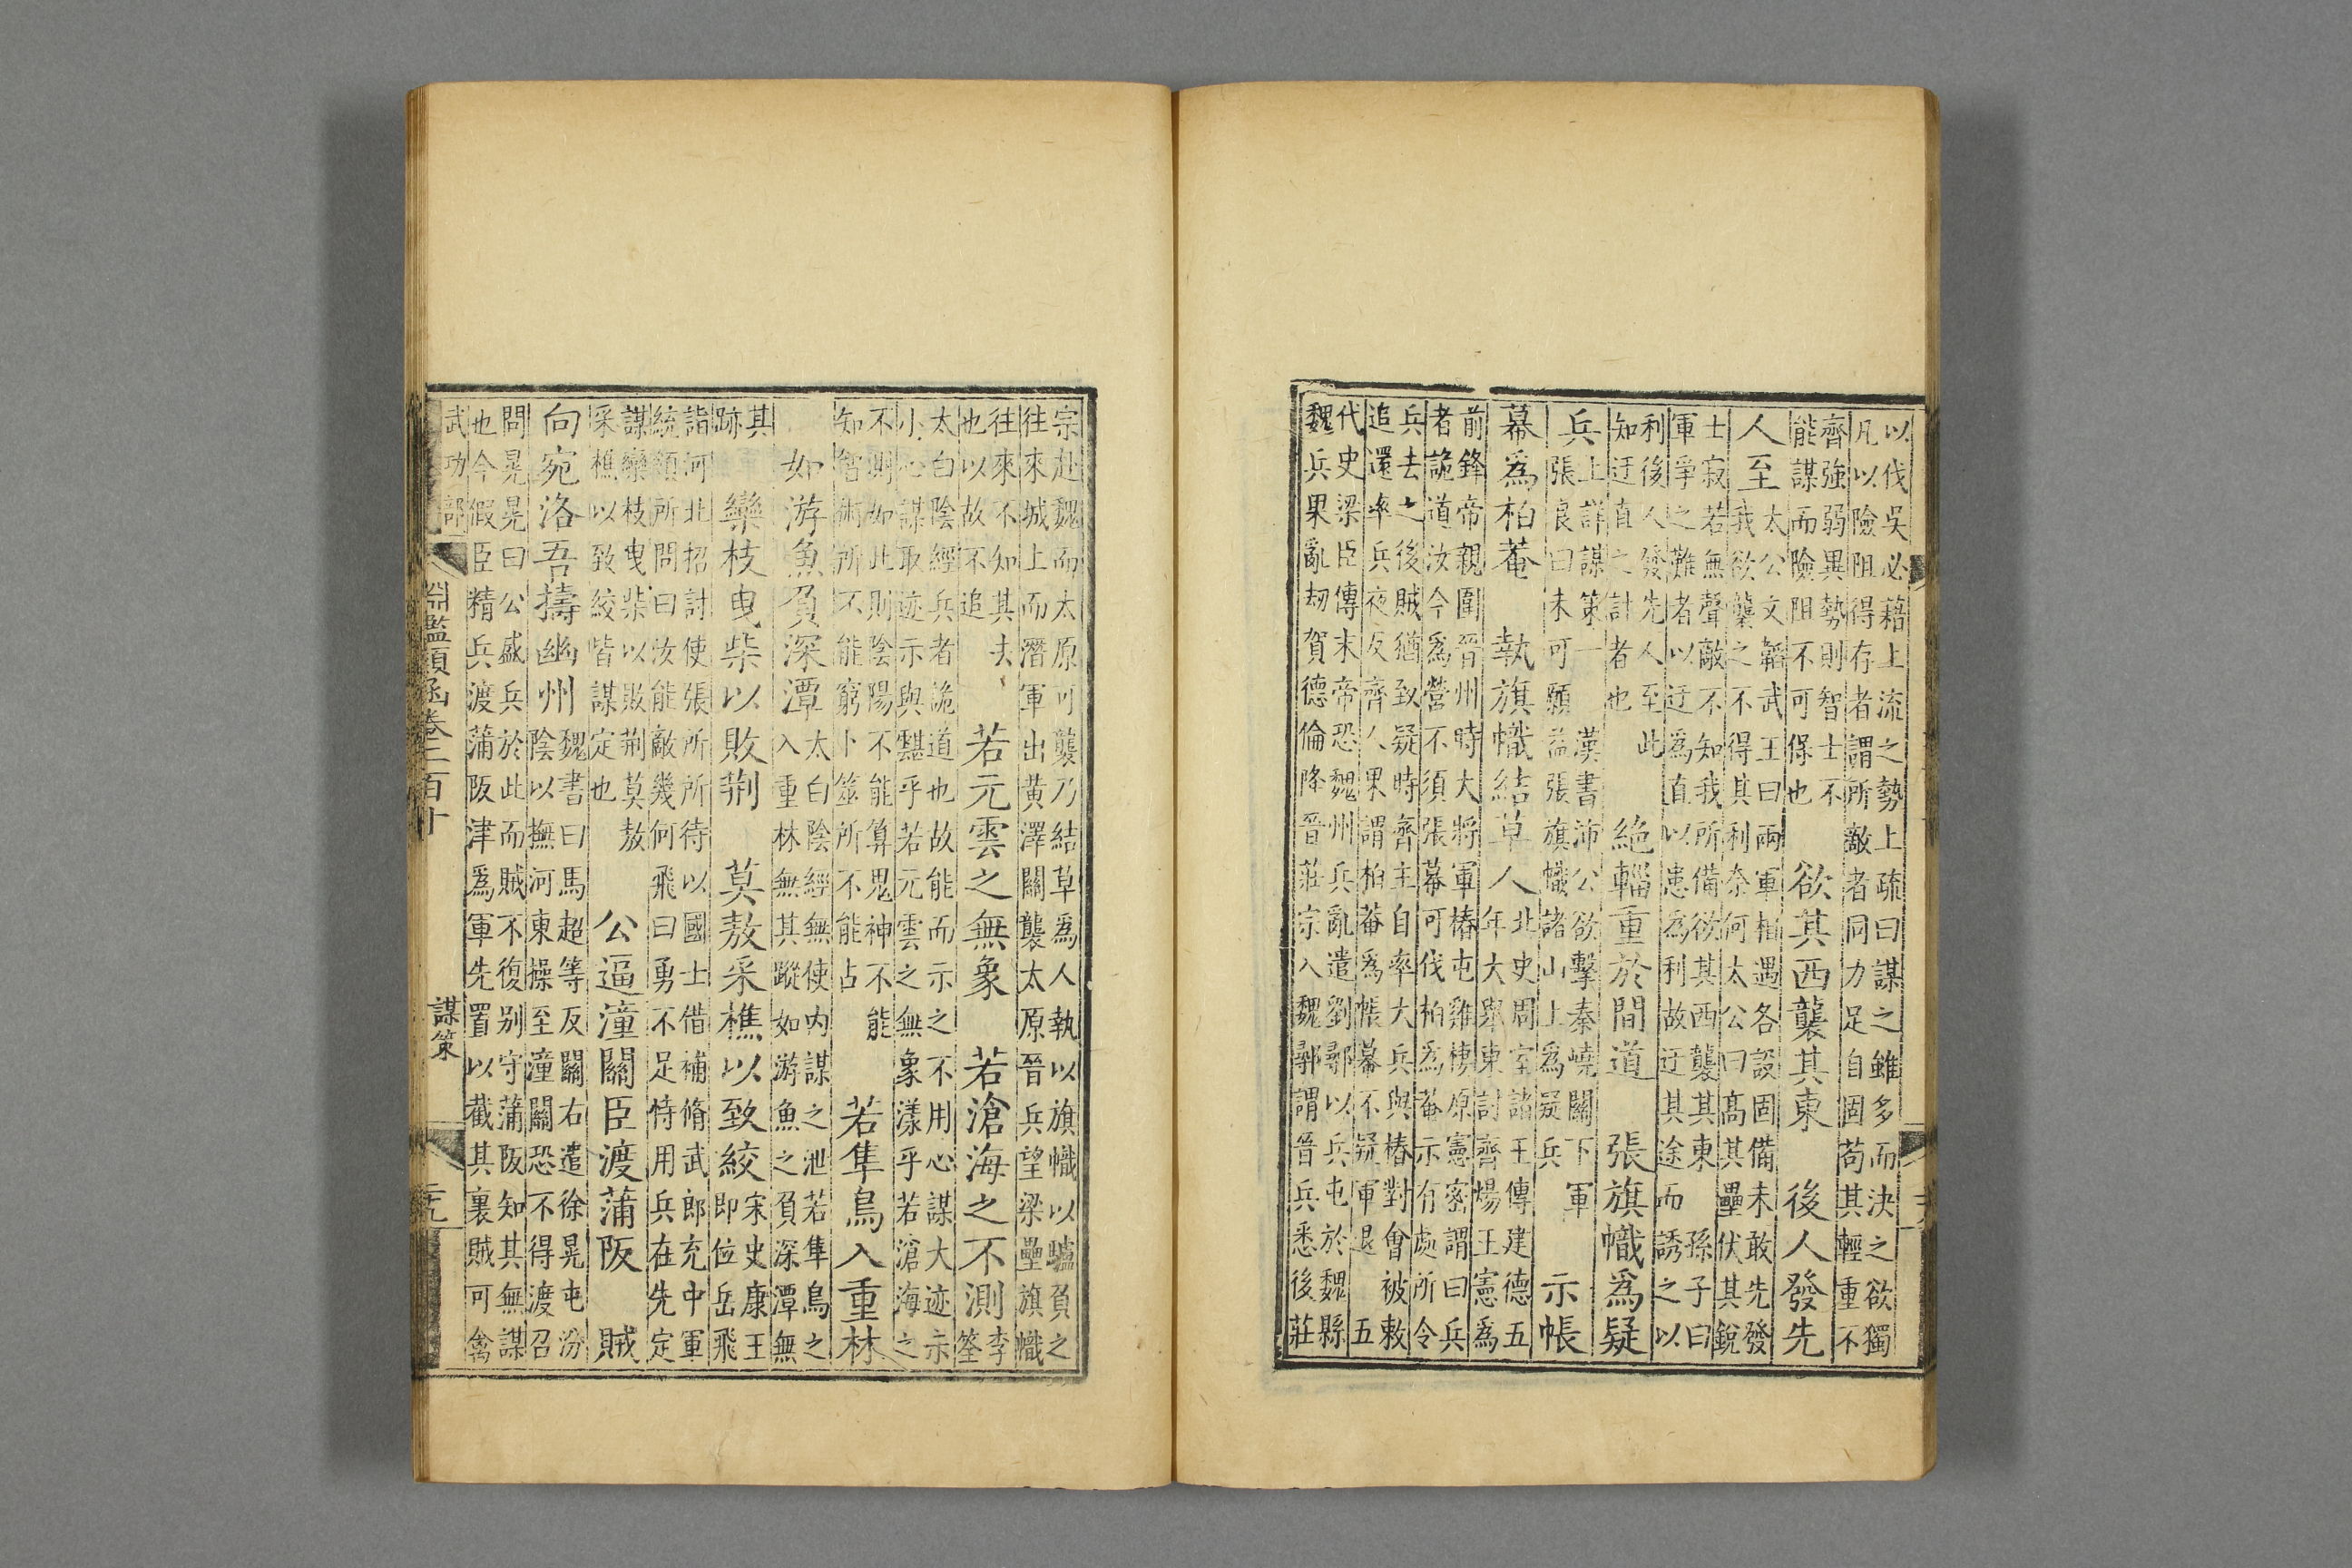 以伐吳必藉上流之勢上疏曰謀之雖多而決之欲獨
凡以險阻得存者謂所敵者同力足自固苟其輕重不
齊強弱異勢則智士不
能謀而險阻不可保也
欲其西襲其東　後人發先
人至
太公文韜武王曰兩軍相遇各設固備未敢先發
我欲襲之不得其利奈何太公曰高其壘伏其銳
士寂若無聲敵不知我所備欲其西襲其東　孫子曰
軍爭之難者以迂爲直以患爲利故迂其途而誘之以
利後人發先人至此
知迂直之計者也
絶輜重於間道　張旗幟爲疑
兵
上詳謀策一　漢書沛公欲擊秦嶢關下軍
張良曰未可願益張旗幟諸山上爲疑兵
示帳
幕爲柏菴　執旗幟結草人
北史周室諸王傳建德五
年大舉東討齊煬王憲爲
前鋒帝親圍晉州時大將軍椿屯雞棲原憲密謂曰兵
者詭道汝今爲營不須張幕可伐柏爲菴示有處所令
兵去之後賊猶致疑時齊主自率大兵與椿對會被敕
追還率兵夜反齊人果謂柏菴爲帳幕不疑軍退　五
代史梁臣傳末帝恐魏州兵亂遣劉鄩以兵屯於魏縣
魏兵果亂劫賀德倫降晉莊宗入魏鄩謂晉兵悉後莊
宗赴魏而太原可襲乃結草爲人執以旗幟以驢負之
往來城上而潛軍出黃澤關襲太原晉兵望梁壘旗幟
往來不知其去
也以故不追
若元雲之無象　若滄海之不測
李
筌
太白陰經兵者詭道也故能而示之不用心謀大迹示
小心謀取迹示與黮乎若元雲之無象漾乎若滄海之
不測如此則陰陽不能算鬼神不能
知智術所不能窮卜筮所不能占
若隼鳥入重林
如游魚負深潭
太白陰經無使内謀之泄若隼鳥之
入重林無其蹤如游魚之負深潭無
其
跡
欒枝曳柴以敗荆　莫敖采樵以致絞
宋史康王
即位岳飛
詣河北招討使張所所待以國士借補脩武郎充中軍
統領所問曰汝能敵幾何飛曰勇不足恃用兵在先定
謀欒枝曳柴以敗荆莫敖
采樵以致絞皆謀定也
公逼潼關臣渡蒲阪　賊
向宛洛吾擣幽州
魏書曰馬超等反關右遣徐晃屯汾
陰以撫河東操至潼關恐不得渡召
問晃晃曰公盛兵於此而賊不復别守蒲阪知其無謀
也今假臣精兵渡蒲阪津爲軍先置以截其裏賊可禽
武功部
淵鑑類函卷二百十
謀策